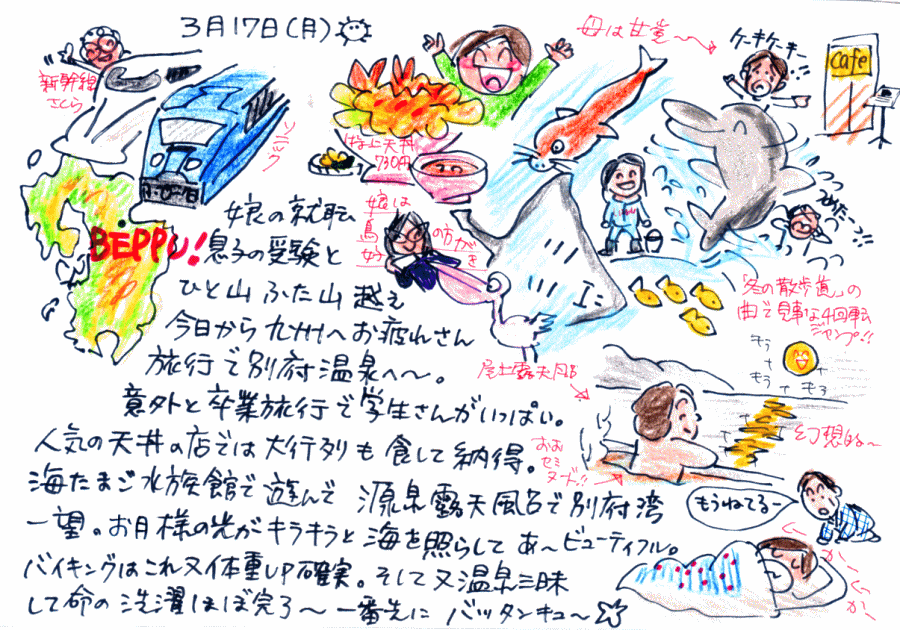 3月17日(月)
新幹線
さくら
ソニック
母は甘党〜〜
ケーキケーキー
cafe
上天丼
730円
BEPPU!
娘は
鳥
の方が
好き
つめた〜
「冬の散歩道」の
曲で見事な4回転
ジャンプ!!
娘の就転
息子の受験と
ひと山ふた山越え
今日から九州へお疲れさん
旅行で別府温泉へ〜。
意外と卒業旅行で学生さんがいっぱい。
人気の天丼の店では大行列も食して納得。
海たまご水族館で遊んで源泉露天風呂で別府湾
一望。お月様の光がキラキラと海を照らしてあ〜ビューティフル。
バイキングはこれ又体重UP確実。そして又温泉三昧
して命の洗濯ほぼ完了〜一番先にバッタンキュ〜☆
屋上露天風呂
おお
セミ
ヌード!!
もう
もう
もう
幻想的〜
もうねてるー
かー
かー